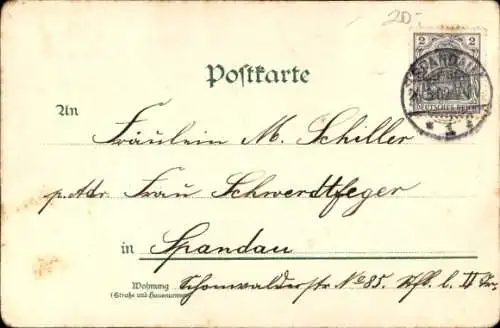 20.-
2 2
SPANDAU
DEUTSCHES REICH
* 1 *
Postkarte
An
Fräulein M. Schiller
p. Adr. Frau Schwerdtfeger
in Spandau
Wohnung Schönwalderstr No 85. Hfb. l. II Tr.
(Straße und Hausnummer)